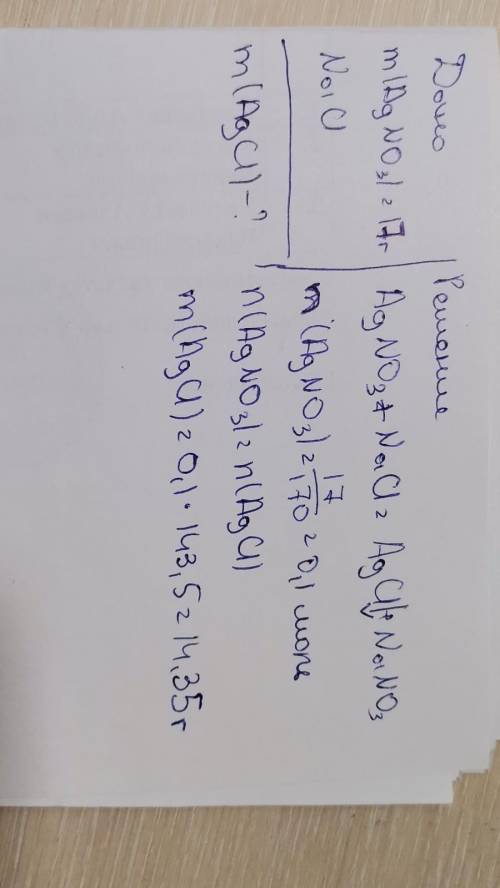 Дано
m(AgNO₃) = 17г
NaCl
m(AgCl) - ?
Решение
AgNO₃ + NaCl = AgCl↓ + NaNO₃
m(AgNO₃) = 17/170 = 0,1 моль
n(AgNO₃) = n(AgCl)
m(AgCl) = 0,1 · 143,5 = 14,35г